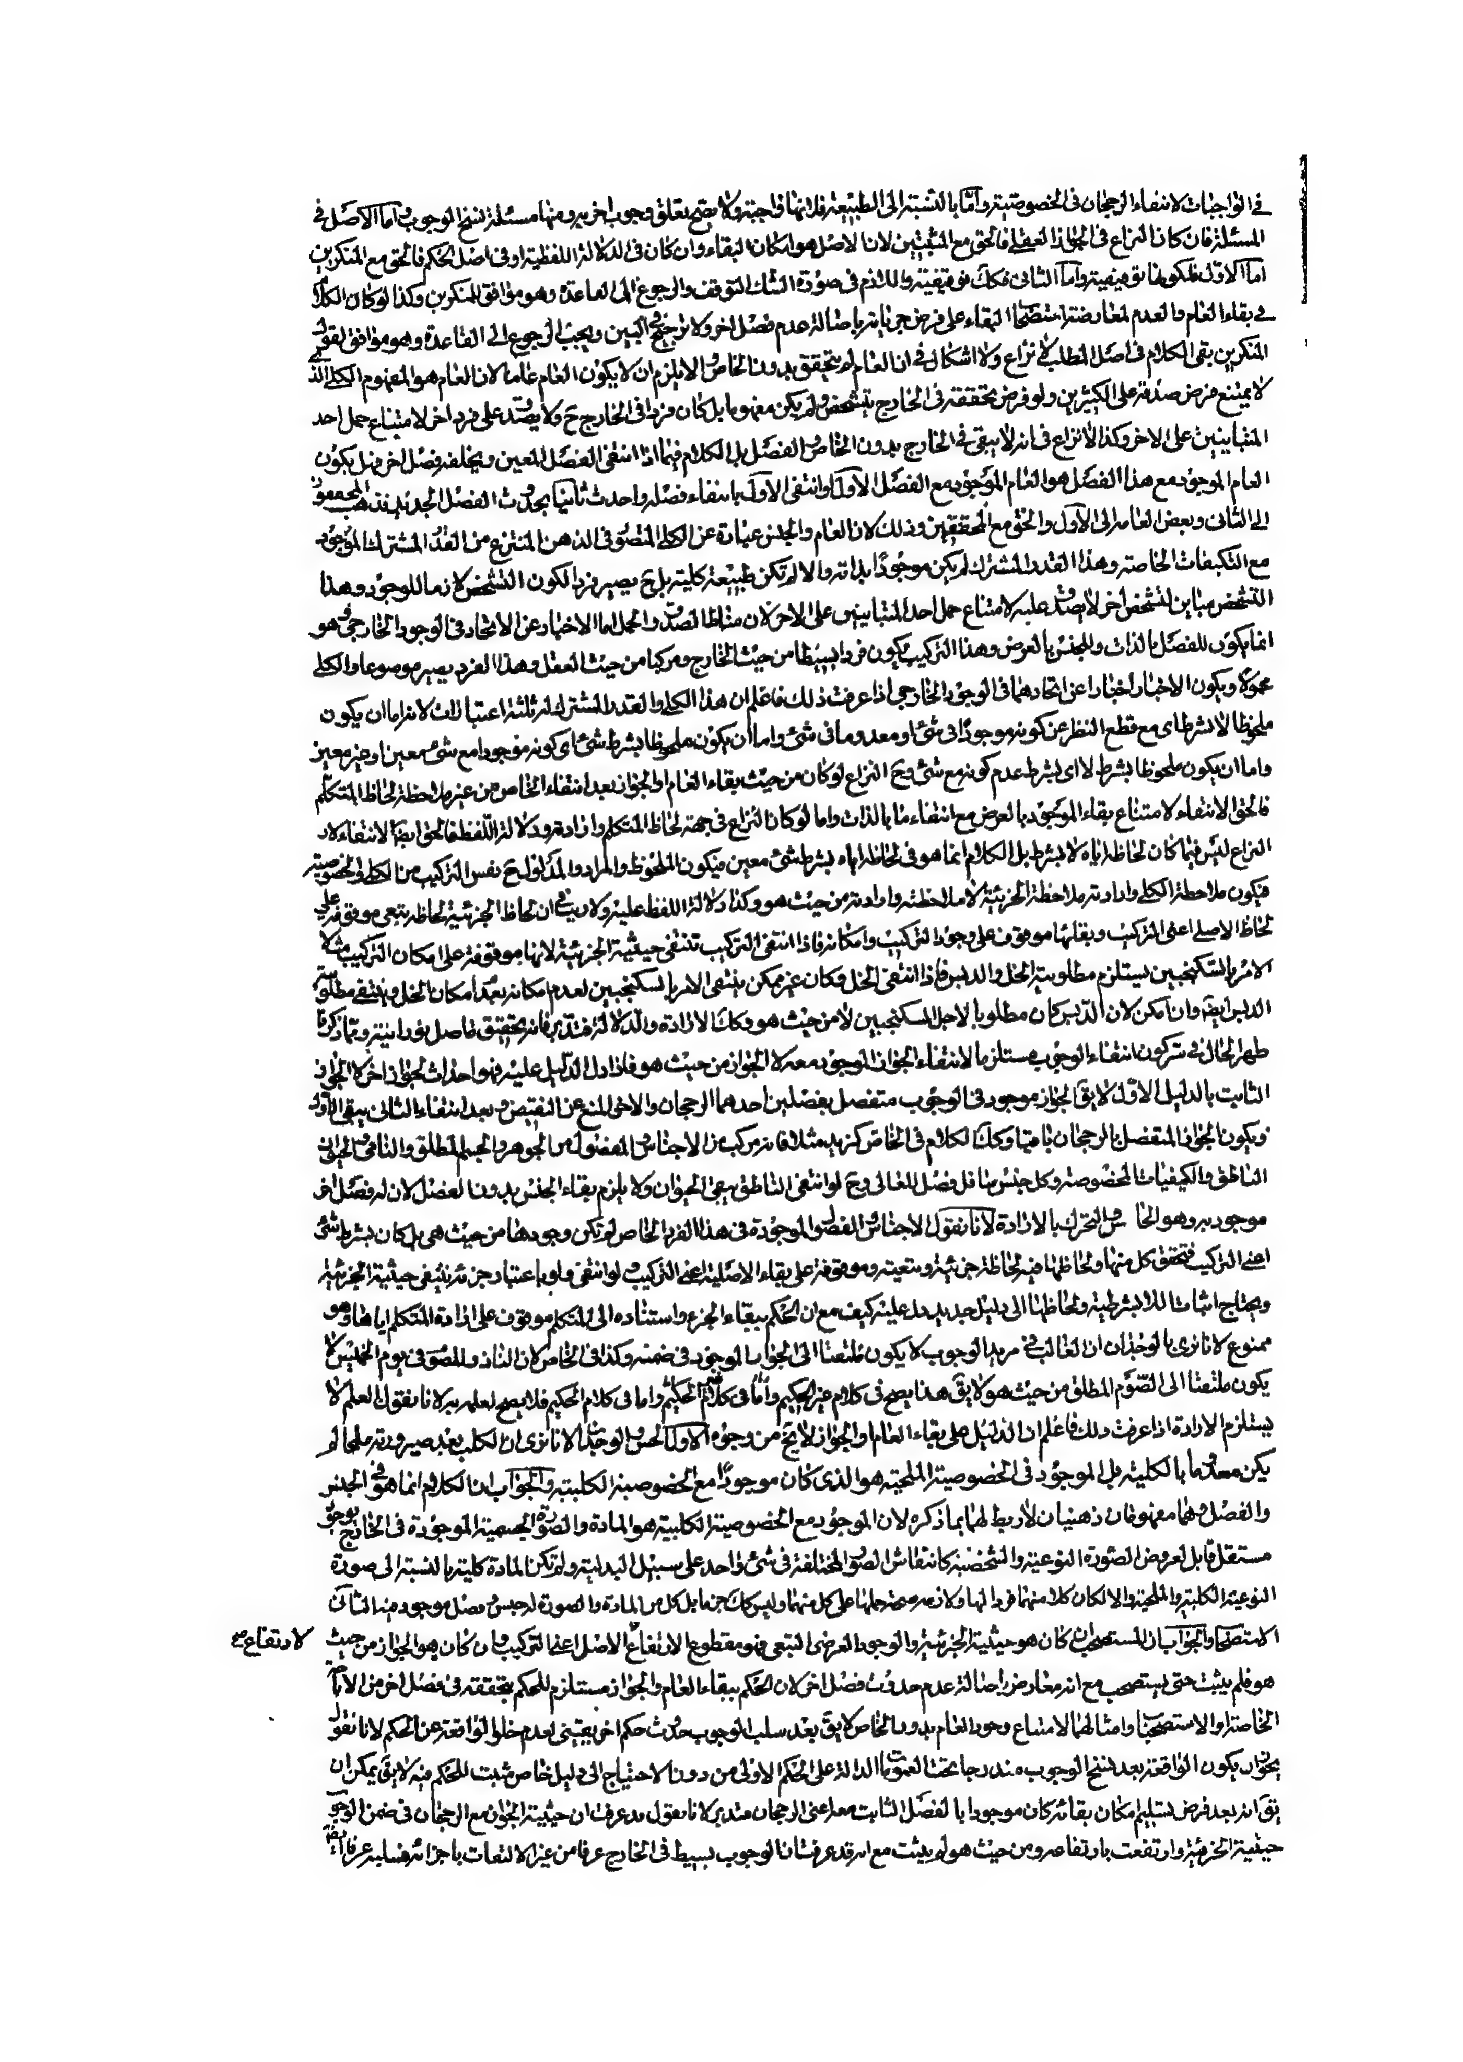 في الواجبات لانتفاء الرجحان في الخصوصيته واما بالنسبة الى الطبيعة فلانها واجبته ولا يصح تعلق وجوب اخر به ومنها مسئلة نسخ الوجوب واما الاصل في
المسئلة فان كان النزاع في الجواز العقلى فالحق مع المثبتين لان الاصل هو امكان البقاء وان كان في الدلالة اللفظية او في اصل الحكم فالحق مع المنكرين
اما الاول فلكونها توقيفية واما الثانى فكك توقيفية واللازم في صورة الشك التوقف والرجوع الى القاعدة وهو موافق للمنكرين وكذا لو كان الكلام
في بقاء العام والعدم لمعارضة استصحاب البقاء على فرض جريانه باصالة عدم فصل اخر ولا ترجيح في البين ويجب الرجوع الى القاعدة وهو موافق لقول
المنكرين بقى الكلام في اصل المطلب لا نزاع ولا اشكال في ان العام لم يتحقق بدون الخاص والا يلزم ان لا يكون العام عاما لان العام هو المفهوم الكلى الذى
لا يمتنع فرض صدقه على الكثيرين ولو فرض تحققه في الخارج بتشخص ولم يكن مفهوما بل كان فردا في الخارج ح ولا يصدق على فرد اخر لامتناع حمل احد
المتباينين على الاخر وكذا لا نزاع في انه لا يبقى في الخارج بدون الخاص والفصل بل الكلام فيما اذا انتفى الفصل المعين ويخلفه فصل اخر فهل يكون
العام الموجود مع هذا الفصل هو العام الموجود مع الفصل الاول او انتفى الاول بانتفاء فصله واحدث ثانيا بحدوث الفصل الجديد فذهب المحققون
الى الثانى وبعض العامه الى الاول والحق مع المحققين وذلك لان العام والجنس عبارة عن الكلى المتصور في الذهن المنتزع من القدر المشترك الموجود
مع التكيفات الخاصته وهذا القدر المشترك لم يكن موجودا بذاته والا لم تكن طبيعة كليته بل ح يصير فردا لكون التشخص لازما للوجود وهذا
التشخص مباين لتشخص اخر لا يصدق عليه لامتناع حمل احد المتباينين على الاخر لان مناط الصدق والحمل اما الاخبار عن الاتحاد في الوجود الخارجي وهو
انما يكون للفصل بالذات وللجنس بالعرض وهذا التركيب يكون فردا بسيطا من حيث الخارج ومركبا من حيث العقل وهذا الفرد يصير موضوعا والكلى
محمولا ويكون الاخبار اخبارا عن اتحادهما في الوجود الخارجي اذا عرفت ذلك فاعلم ان هذا الكلى والقدر المشترك له ثلثة اعتبارات لانه اما ان يكون
ملحوظا لا بشرط اى مع قطع النظر عن كونه موجودا في شئ او معدوما في شئ واما ان يكون ملحوظا بشرط شئ اى كونه موجودا مع شئ معين او غير معين
واما ان يكون ملحوظا بشرط لا اى بشرط عدم كونه مع شئ وح النزاع لو كان من حيث بقاء العام او الجواز بعد انتفاء الخاص من غير ملاحظة لحاظ المتكلم
فالحق الانتفاء لامتناع بقاء الموجود بالعرض مع انتفاء ما بالذات واما لو كان النزاع في جهة لحاظ المتكلم وارادته ودلالة اللفظ فالحق ايضا الانتفاء لان
النزاع ليس فيما كان لحاظه اياه لا بشرط بل الكلام انما هو في لحاظه اياه بشرط شئ معين فيكون الملحوظ والمراد والمدلول ح نفس التركيب من الكلى والخصوصية
فيكون ملاحظة الكلى وارادته ملاحظة الجزئية لا ملاحظته وارادته من حيث هو وكذا دلالة اللفظ عليه ولا ريب في ان لحاظ الجزئية لحاظه يتبعى موقوفة على
لحاظ الاصلى اعنى التركيب وبقائها موقوف على وجود التركيب وامكانه فاذا انتفى التركيب تنتفى حيثية الجزئية لانها موقوفة على امكان التركيب مثلا
الامر بالسكنجبين يستلزم مطلوبية الخل والدبس فاذا انتفى الخل فكان غير ممكن ينتفى الامر بالسكنجبين لعدم امكانه بعدم امكان الخل وينتفى مطلوبية
الدبس ايضا وان امكن لان الدبس كان مطلوبا لاجل السكنجبين لا من حيث هو وكك الارادة والدلالة فتدبر فانه تحقيق فاصل نورانية ومما ذكرنا
ظهر الحال في كون انتفاء الوجوب مستلزما لانتفاء الجواز الموجود معه لا الجواز من حيث هو فاذا دل الدليل عليه فهو احداث لجواز اخر لا الجواز
الثابت بالدليل الاول لا يق الجواز موجود في الوجوب متفصل بفصلين احدهما الرجحان والاخر المنع عن النقيض فبعد انتفاء الثانى يبقى الاول
ويكون الجواز المتفصل بالرجحان باقيا وكك الكلام في الخاص كزيد مثلا فانه مركب من الاجناس والفصول من الجوهر والجسم المطلق والنامى والحيوان
الناطق والكيفيات المخصوصته وكل جنس سافل فصل للعالى وح لو انتفى الناطق يبقى الحيوان ولا يلزم بقاء الجنس بدون الفصل لان له فصل اخر
موجود به وهو الحاس والمتحرك بالارادة لانا نقول الاجناس والفصول الموجودة في هذا الفرد الخاص لم تكن وجودها من حيث هى بل كان بشرط شئ
اعنى التركيب فتحقق كل منها ولحاظها فيه لحاظة جزئية وتبعيته وموقوفة على بقاء الاصلية اعنى التركيب ولو انتفى ولو باعتبار جزئه ينتفى حيثية الجزئية
ويحتاج اثبات اللابشرطية ولحاظها الى دليل جديد يدل عليه كيف مع ان الحكم ببقاء الجزء واستناده الى المتكلم موقوف على ارادة المتكلم اياها وهو
ممنوع لانا نرى بالوجدان ان الغالب في مريد الوجوب لا يكون ملتفتا الى الجواز الموجود في ضمنه وكذا في الخاص لان الناذر للصوم في يوم الخميس لا
يكون ملتفتا الى الصوم المطلق من حيث هو لا يق هذا يصح في كلام غير الحكيم واما في كلام الحكيم فلا يصح لعلمه به لانا نقول العلم لا
يستلزم الارادة اذا عرفت ذلك فاعلم ان الدليل على بقاء العام او الجواز لا يخ من وجوه الاول الحس والوجدان الا نرى ان الكلب بعد صيرورته ملحا لم
يكن معدوما بالكلية بل الموجود في الخصوصية الملحية هو الذى كان موجودا مع الخصوصية الكلبية والجواب ان الكلام انما هو في الجنس
والفصل وهما مفهومان ذهنيان لا ربط لهما بما ذكره لان الموجود مع الخصوصية الكلبية هو المادة والصورة الجسمية الموجودة في الخارج بوجود
مستقل قابل لعروض الصورة النوعية والشخصية كانتقاش الصور المختلفة في شئ واحد على سبيل البدلية ولم تكن المادة كلية بالنسبة الى صورة
النوعية الكلبية والملحية والا لكان كلا منهما فردا لها ولازمه صحة حملها على كل منهما وليس كك جزما بل كل من المادة والصورة له جنس وفصل موجود فيه الثانى
الاستصحاب والجواب ان المستصحب ان كان هو حيثية الجزئية والوجود العرضى التبعى فهو مقطوع الارتفاع لارتفاع صح الاصل اعنى التركيب وان كان هو الجواز من حيث
هو فلم يثبت حتى يستصحب مع انه معارض باصالة عدم حدوث فصل اخر لان الحكم ببقاء العام والجواز مستلزم للحكم بتحققه في فصل اخر من الاباحة
الخاصة او الاستصحاب وامثالهما لامتناع وجود العام بدون الخاص لا يق بعد سلب الوجوب حدوث حكم اخر يقينى لعدم خلو الواقعة عن الحكم لانا نقول
يجوز ان يكون الواقعة بعد نسخ الوجوب مندرجا تحت العمومات الدالة على الحكم الاولى من دون الاحتياج الى دليل خاص مثبت للحكم فيه لا يق يمكن ان
يق انه بعد فرض تسليم امكان بقائه كان موجودا بالفصل الثابت معه اعنى الرجحان فتدبر لانا نقول قد عرفت ان حيثية الجواز مع الرجحان في ضمن الوجوب
حيثية الجزئية وارتفعت بارتفاعه ومن حيث هو لم يثبت مع انه قد عرفت ان الوجوب بسيط في الخارج عرفا من غير الالتفات باجزائه فسلبه عرفا ايضا